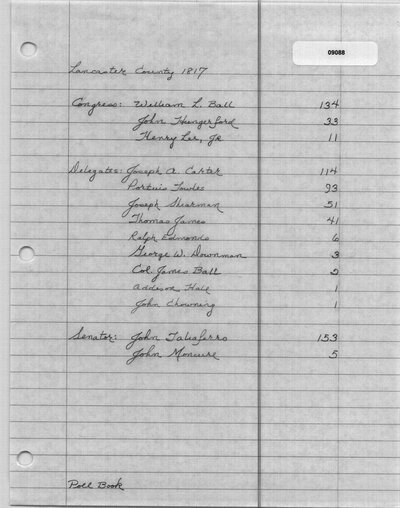 09088
Lancaster County 1817
Congress: William L. Ball 134
John Hungerford 33
Henry Lee, Jr 11
Delegates: Joseph A. Carter 114
Portuis Towles 93
Joseph Shearman 51
Thomas James 41
Ralph Edmonds 6
George W. Downman 3
Col. James Ball 2
Addison Hall 1
John Chowning 1
Senator: John Taliaferro 153
John Moncure 5
Poll Book